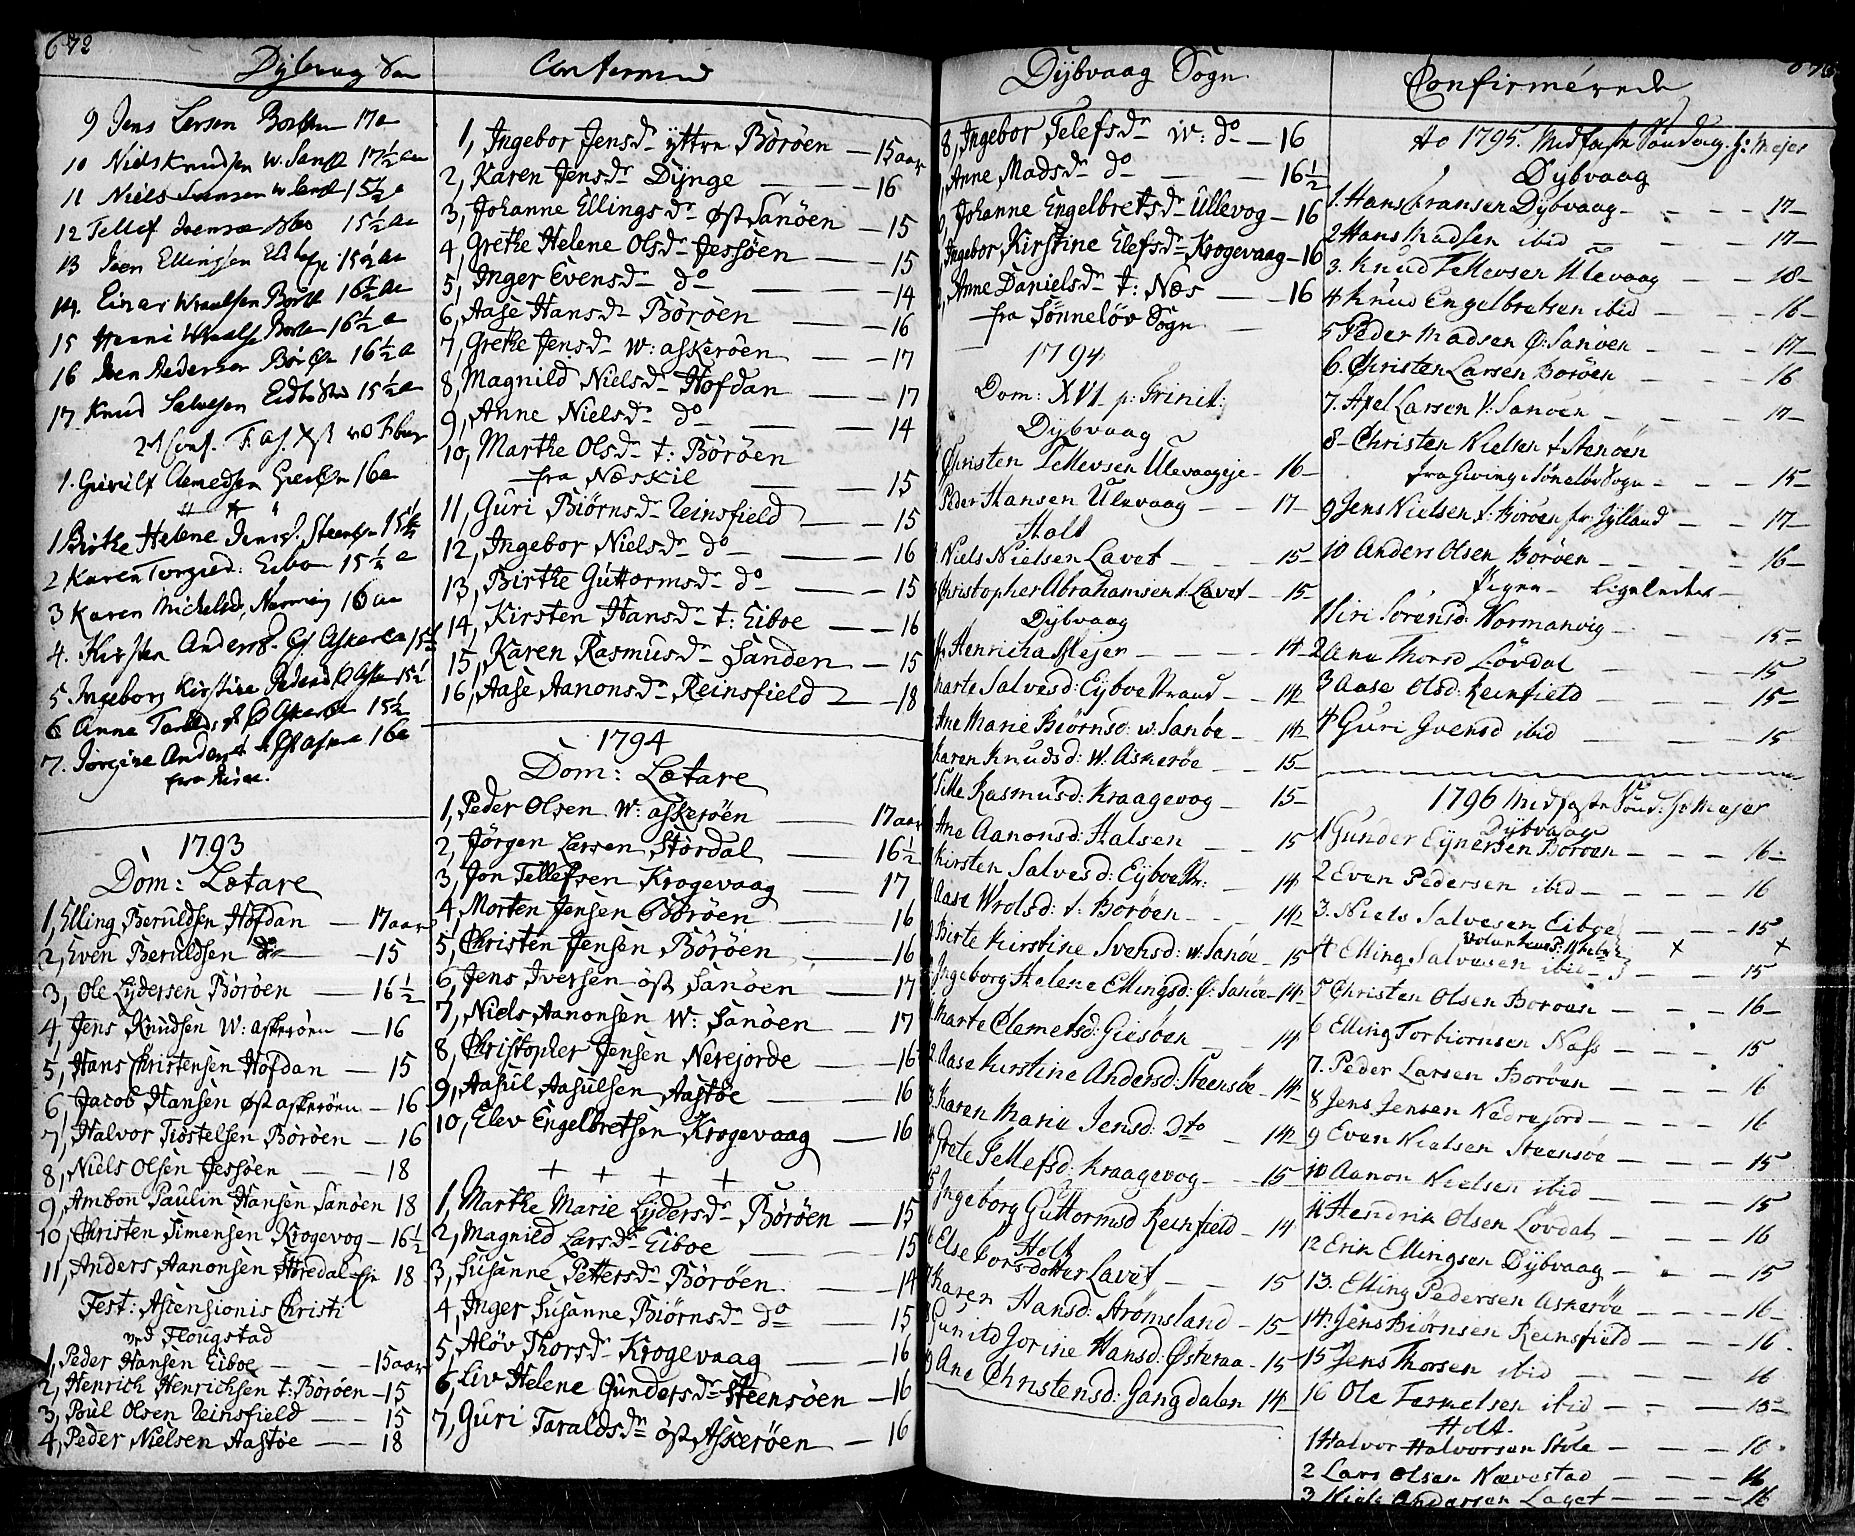 672
Dybvaag Sogn
9 Jens Larsen Borøen 17 a
10 Niels Knudsen W. Sanø 17½ aa
11 Niels Svensen w Sanø 15½ a
12 Tellef Ivensøn 15½ aa
13 Iven Ellingsen 15½ aa
14. Einar Wraalsen Borøe 16½ aa
15 Henri Wraalsen Borøe 16½ a
16 Iven Pedersen Børøen 16½ a
17 Knud Salvesen Eidbo 15½ a
1. Clemedsen Giesøen 16 a
1 Birthe Helene Jensd. Steensø 15½
2 Karen Torgied: Eibo 15½ a
3 Karen Mickelsd. Normvig 16 aa
4. Kirsten Andersd. Askerøe 15½
5. Ingeborg Kirstine Pedersd. Askerø 15½
6 Anna Askerøe 15½
7. Jørgine Andersd. Askerøe 16 a
fra
1793
Dom: Lætare
1, Elling Beruldsen Hofdan — 17 aar
2, Even Beruldsen do — 15
3, Ole Lydersen Böröen — 16½
4, Jens Knudsen W: askeröen — 16
5, Hans Christensen Hofdan — 15
6, Jacob Hansen öst askeröen — 16
7, Halvor Tiöstelsen Böröen — 16
8, Niels Olsen Jessöen — — 18
9, Ambon Paulin Hansen Sanöen 18
10, Christen Simensen Krogevog — 16½
11, Anders Aanonsen Störedal eje 18
Fest: Ascensionis Christi
ved Flougstad
1, Peder Hansen Eiboe — — 15 aar
2, Henrich Henrichsen t: Böröen — 15
3, Poul Olsen Reinsfield — — 15
4, Peder Nielsen Aastöe — — 18
Confermed
1, Ingebor Jensdr yttre Böröen — 15 aar
2, Karen Jensdr Dynge — — — 16
3, Johanne Ellingsdr öst Sanöen — 15
4, Grethe Helene Olsdr Jessöen — 15
5, Inger Evensdr do — — — 14
6, Aase Hansdr Böröen — — 16
7, Grethe Jensdr W: askeröen — — 17
8, Magnild Nielsdr Hofdan — — 17
9, Anne Nielsdr do — — 14
10, Marthe Olsdr t: Böröen
fra Næskil — — 15
11, Guri Biörnsdr Reinsfield — — 15
12, Ingebor Nielsdr do — — 16
13, Birthe Guttormsdr do — — 15
14, Kirsten Hansdr t: Eiboe — — 16
15, Karen Rasmusdr Sanden — 15
16, Aase Aanonsdr Reinsfield — 18
1794
Dom: Lætare
1, Peder Olsen W: askeröen — 17 aar
2, Jörgen Larsen Stördal — 16½
3, Jon Tellefsen Krogevaag — 17
4, Morten Jensen Böröen — 16
5, Christen Jensen Böröen — 16
6, Jens Iversen öst Sanöen — 17
7, Niels Aanonsen W: Sanöen — 17
8, Christopher Jensen Nerejorde — 16
9, Aasul Aasulsen Aastöe — 16
10, Elev Engelbretsen Krogevaag — 16
+ + + +
1, Marthe Marie Lydersdr Böröen — 15
2, Magnild Larsdr Eiboe — — 15
3, Susanne Pettersdr Böröen — 14
4, Inger Susanne Biörnsdr do — 15
5, Aslöv Thorsdr Krogevaag — 16
6, Liv Helene Gundersdr Steensöen — 16
7, Guri Taraldsdr öst Askeröen — 16
Dybvaag Sogn
8, Ingebor Telefsdr W: do — 16
Anne Madsdr do — — 16½
Johanne Engelbretsdr Ullevog — 16
Ingebor Kirstine Elefsdr Krogevaag — 16
Anne Danielsdr t: Næs — — 16
fra Sönnelöv Sogn —
1794
Dom: XVI p: Trinit:
Dybvaag
Christen Tellevsen Ulevaageje — 16 —
Peder Hansen Ulevaag — — 17 —
Holt
Niels Nielsen Lavet — — — 15 —
Christopher Abrahamsen t. Lavet — 15 —
Dybvaag
Henricha Mejer — — — — 14 —
Marte Salvesd: Eyboe Strand — 14 —
Ane Marie Biörnsd: w: Sanöe — 14 —
Karen Knudsd: W. Askeröe — — 15 —
Sille Rasmusd: Kraagevog — 15 —
Ane Aanonsd: Halsen — — 15
Kirsten Salvesd: Eyboe Str: — 14
Aase Wrolsd: t: Boröen — — 14 —
Birte Kirstine Svensd: w. Sanöe — 15
Ingeborg Helene Ellingsd: Ø: Sanöe — 14 —
Marte Clemetsd: Giesöen — 14
2. Aase Kirstine Andersd: Steensöe — 14 —
3. Karen Maria Jensd: Dto — 14 —
4 Grete Tellefsd: Kraagevog — — 15 —
5 Ingeborg Guttormsd Reinfield — 14
Holt
6 Else Corsdotter Lavet — — 15
7 Karen Hansd: Strömsland — 15 —
Gunild Jorine Hansd: Østeraa — 15
9 Ane Christensd: Gangdalen 14 —
Confirmérede
Ao 1795. Midfaste Söndag. Hr: Mejer
Dybvaag
1. Hans Cransen Dybvaag — — — 17 —
2 Hans Madsen ibid — — — 17 —
3. Knud Tellevsen Ulevaag — — 18 —
4 Knud Engelbretsen ibid — — — 16 —
5 Peder Madsen Ø: Sanöen — — 17 —
6. Christen Larsen Boröen — — — 16
7. Axel Larsen V: Sanöen — — — 17 —
8 — Christen Nielsen t. Stenöen
fra Givings Sönelöv Sogn — — — 15 —
9 Jens Nielsen t. Boröen fr: Jylland — — 17 —
10 Anders Olsen Boröen — — — 16 —
Pigen — Ligeledes —
1 Siri Sörensd: Normanvig — — — 15 —
2 Ane Thorsd Lövdal — — 15
3 Aase Olsd: Reinfield — — — 15 —
4 Guri Svensd ibid — — — 15
1796 Midfaste Sönd: Hr Mejer
Dybvaag
1 Gunder Eynersen Boröen — — — 16 —
2 Even Pedersen ibid — — — — 16
3. Niels Salvesen Eiboe — — 15
4 Elling Salvesen ibid — 3 — — 15
5 Christen Olsen Boröen — — — 16 —
6 Elling Torbiörnsen Næss — — — 15
7. Peder Larsen Boröen — — — 16
8 Jens Jensen Nedrejord — — — 16
9 Even Nielsen Steensöe — — — 15
10 Aanon Nielsen ibid — — — 15
11 Hendrik Olsen Lövdal — — — 16
12 Erik Ellingsen Dybvaag — — 15
13. Elling Pedersen Askeröe — — — 16 —
14: Jens Biörnsen Reinsfield — — — 16
15 Jens Thorsen ibid — — — — 16
16 Ole Termelsen ibid — — — 15 —
Holt.
1 Halvor Halvorsen Stöle — — — 16
2 Lars Olsen Nævestad — — — 16
3 Niels Andersen Laget — — — 16